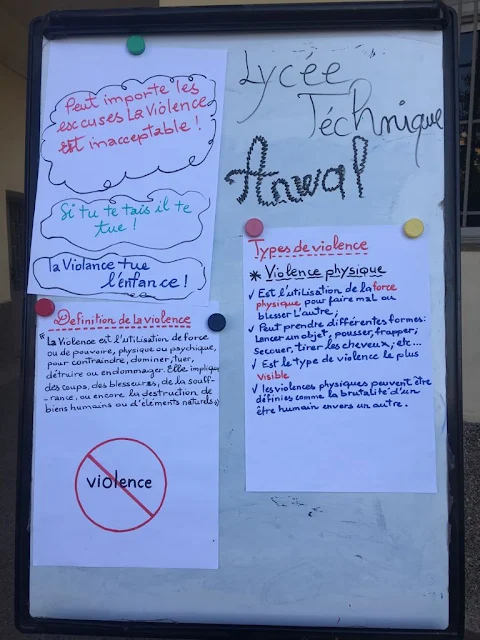 Peut importe les
excuses La Violence
est inacceptable !
Si tu te tais il te
tue !
la Violance tue
l'enfance !
Lycée
Téchnique
Anwal
Définition de la violence
"La Violence est l'utilisation de force
ou de pouvoire, physique ou psychique,
pour contraindre, dominer, tuer,
détruire ou endommager. Elle implique
des coups, des blessures, de la souff-
-rance, ou encore la destruction de
biens humains ou d'éléments naturels,
violence
Types de violence
* Violence physique
✓ Est l'utilisation de la force
physique pour faire mal ou
blesser L'autre,
✓ Peut prendre différentes formes:
Lancer un objet, pousser, frapper,
Secouer, tirer les cheveux, etc...
✓ Est le type de violence le plus
visible
✓ les violences physiques peuvent être
définies comme la brutalité d'un
être humain envers un autre.